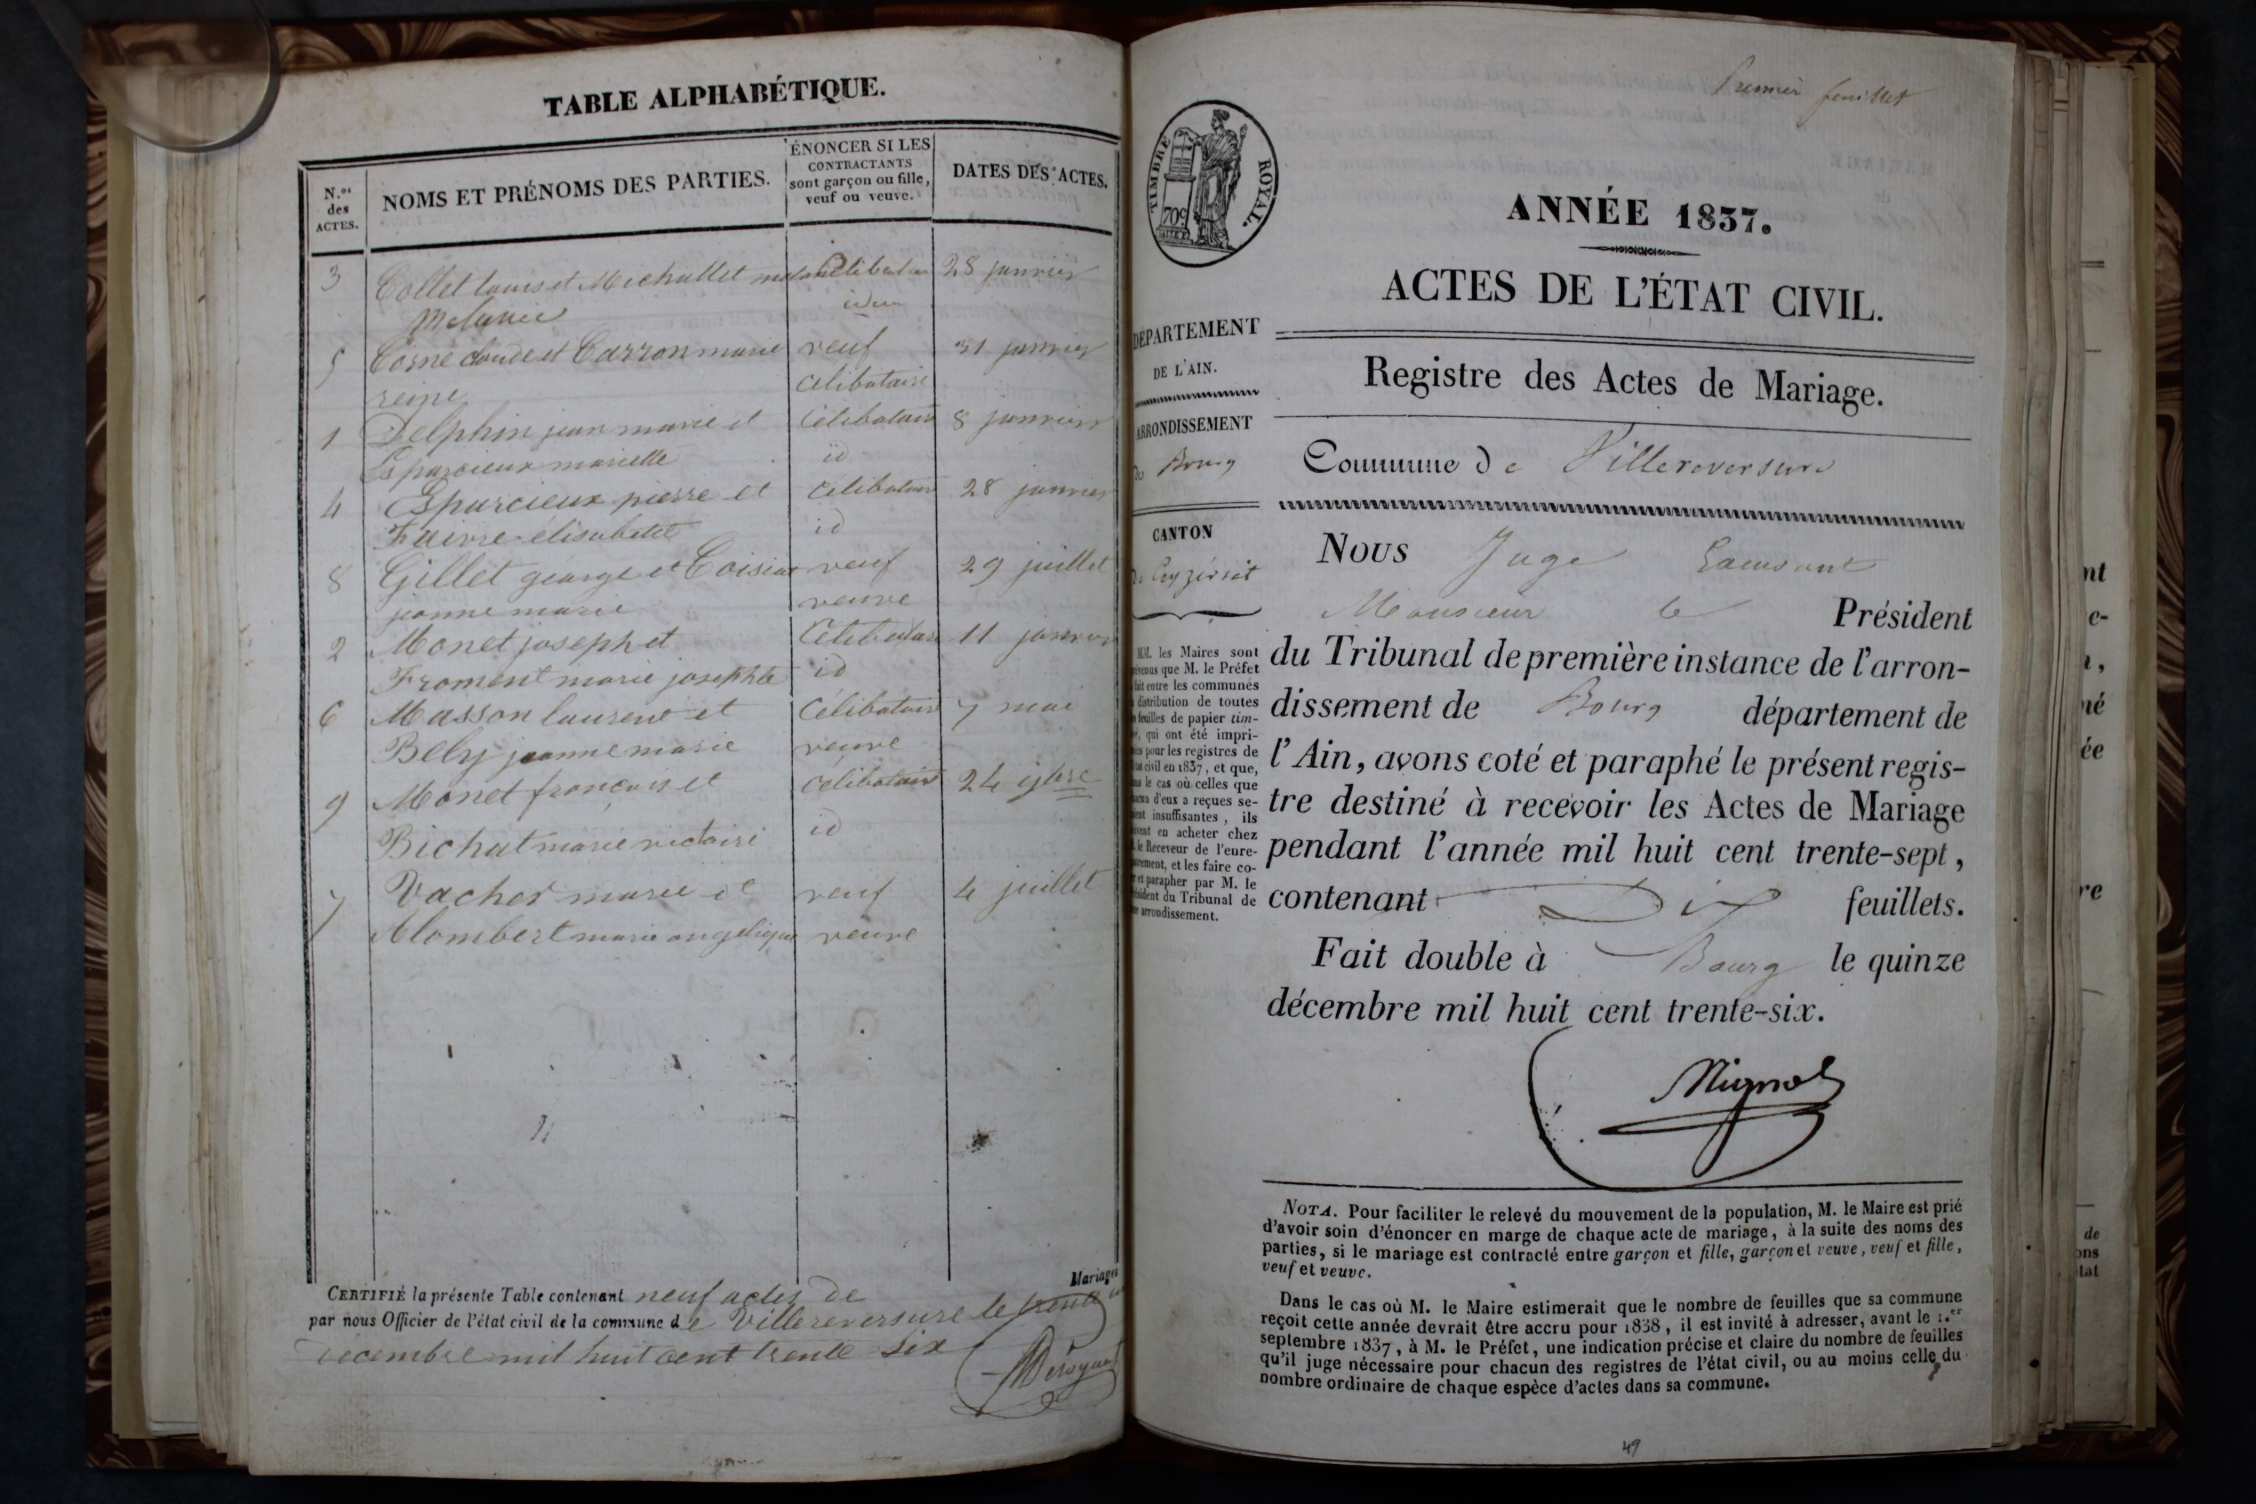 TABLE ALPHABÉTIQUE.
N.os des ACTES.
NOMS ET PRÉNOMS DES PARTIES.
ÉNONCER SI LES
CONTRACTANTS
sont garçon ou fille,
veuf ou veuve.
DATES DES ACTES.
3 Collet louis et Michallet célibataire 28 janvier
Melanie idem
5 Cosne claude et Carron marie veuf 31 janvier
reine célibataire
1 Delphin jean marie et célibataire 8 janvier
Esparcieux mariette id
4 Esparcieux pierre et célibataire 28 janvier
Faivre élisabeth id
8 Gillet george et veuf 29 juillet
jeanne marie veuve
2 Monet joseph et célibataire 11 janvier
Froment marie josephte id
6 Masson laurent et célibataire 7 mai
Bely jeanne marie veuve
9 Monet françois et célibataire 24 9bre
Bichat marie victoire id
7 Vacher marie et veuf 4 juillet
Alombert marie angelique veuve
Mariages
CERTIFIÉ la présente Table contenant neuf actes de
par nous Officier de l'état civil de la commune de Villereversure le trente un
décembre mil huit cent trente six
Premier feuillet
TIMBRE ROYAL.
70c
ANNÉE 1837.
ACTES DE L'ÉTAT CIVIL.
DÉPARTEMENT
DE L'AIN.
ARRONDISSEMENT
de Bourg
CANTON
de Ceyzériat
MM. les Maires sont
prévenus que M. le Préfet
fait entre les communes
distribution de toutes
feuilles de papier tim-
qui ont été impri-
pour les registres de
civil en 1837, et que,
le cas où celles que
d'eux a reçues se-
insuffisantes, ils
en acheter chez
le Receveur de l'enre-
et les faire co-
et parapher par M. le
du Tribunal de
arrondissement.
Registre des Actes de Mariage.
Commune de Villereversure
Nous Juge
Monsieur le Président
du Tribunal de première instance de l'arron-
dissement de Bourg département de
l'Ain, avons coté et paraphé le présent regis-
tre destiné à recevoir les Actes de Mariage
pendant l'année mil huit cent trente-sept,
contenant Dix feuillets.
Fait double à Bourg le quinze
décembre mil huit cent trente-six.
NOTA. Pour faciliter le relevé du mouvement de la population, M. le Maire est prié
d'avoir soin d'énoncer en marge de chaque acte de mariage, à la suite des noms des
parties, si le mariage est contracté entre garçon et fille, garçon et veuve, veuf et fille,
veuf et veuve.
Dans le cas où M. le Maire estimerait que le nombre de feuilles que sa commune
reçoit cette année devrait être accru pour 1838, il est invité à adresser, avant le 1.er
septembre 1837, à M. le Préfet, une indication précise et claire du nombre de feuilles
qu'il juge nécessaire pour chacun des registres de l'état civil, ou au moins celle du
nombre ordinaire de chaque espèce d'actes dans sa commune.
49